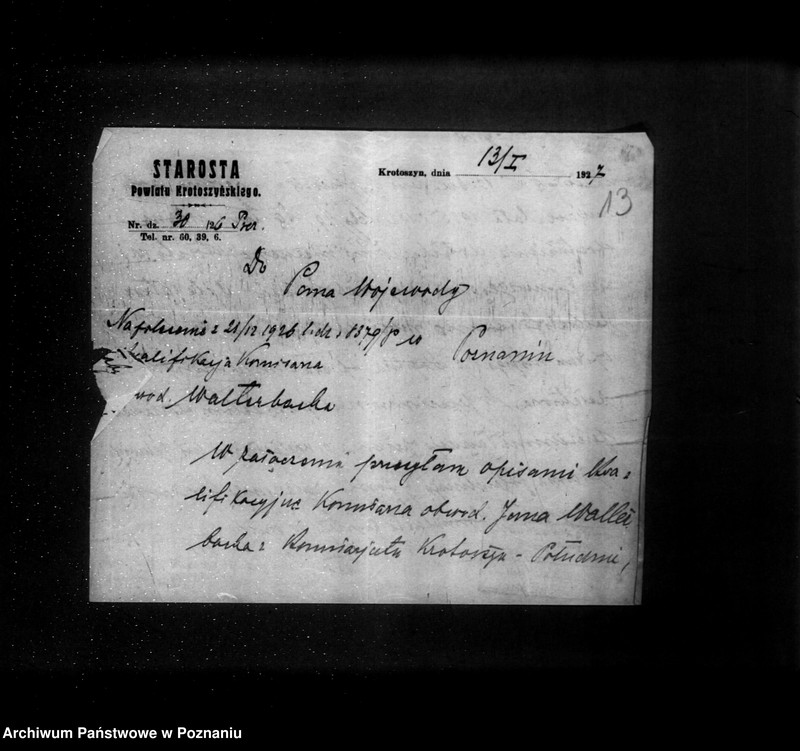 STAROSTA
Powiatu Krotoszyńskiego.
Nr. dz. 30 126 Prez.
Tel. nr. 60, 39, 6.
Krotoszyn, dnia 13/I 1927
13
Do
Pana Wojewody
w Poznaniu
Na polecenie z 21/12 1926 l. dz.
kwalifikacja Komisarza
obwod. Walterbacha
W załączeniu przesyłam opisanie kwa-
lifikacyjne Komisarza obwod. Jana Walter
bacha z Komisarjatu Krotoszyn - Południe,
Archiwum Państwowe w Poznaniu